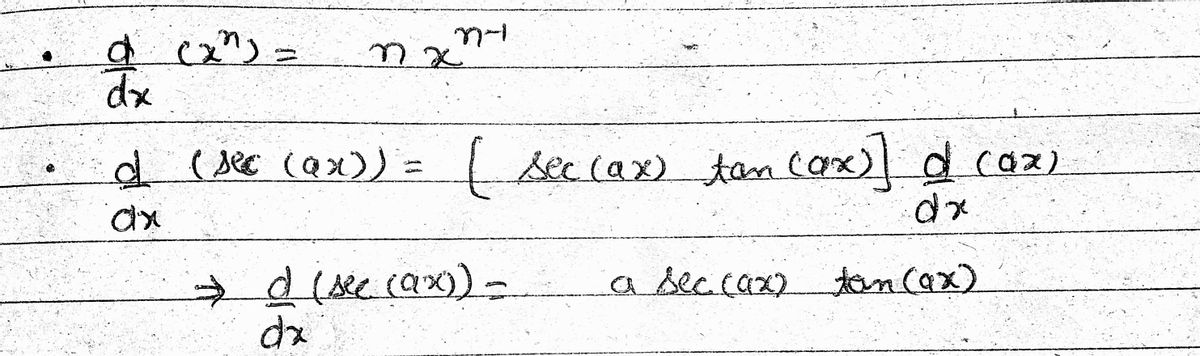 • d/dx (xⁿ) = n xⁿ⁻¹
• d/dx (sec (ax)) = [ sec(ax) tan (ax)] d/dx (ax)
⇒ d/dx (sec (ax)) = a sec(ax) tan(ax)